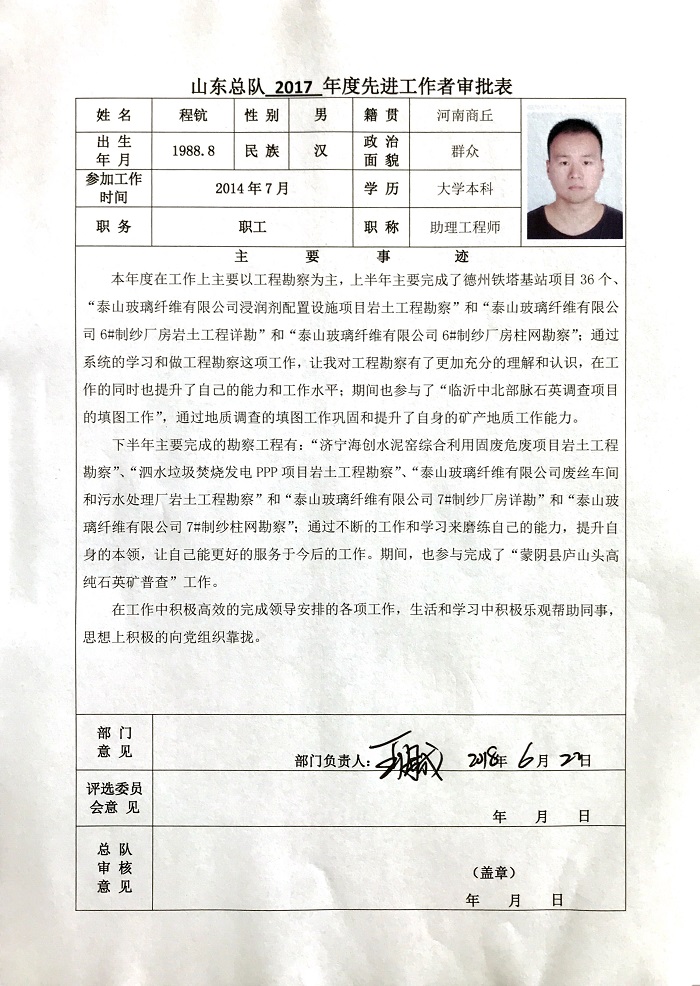 山东总队 2017 年度先进工作者审批表
姓 名 程钪 性 别 男 籍 贯 河南商丘
出 生 年 月 1988.8 民 族 汉 政 治 面 貌 群众
参加工作时间 2014 年 7 月 学 历 大学本科
职 务 职工 职 称 助理工程师
主 要 事 迹
本年度在工作上主要以工程勘察为主，上半年主要完成了德州铁塔基站项目 36 个、
“泰山玻璃纤维有限公司浸润剂配置设施项目岩土工程勘察”和“泰山玻璃纤维有限公
司 6#制纱厂房岩土工程详勘”和“泰山玻璃纤维有限公司 6#制纱厂房柱网勘察”；通过
系统的学习和做工程勘察这项工作，让我对工程勘察有了更加充分的理解和认识，在工
作的同时也提升了自己的能力和工作水平；期间也参与了“临沂中北部脉石英调查项目
的填图工作”，通过地质调查的填图工作巩固和提升了自身的矿产地质工作能力。
下半年主要完成的勘察工程有：“济宁海创水泥窑综合利用固废危废项目岩土工程
勘察”、“泗水垃圾焚烧发电 PPP 项目岩土工程勘察”、“泰山玻璃纤维有限公司废丝车间
和污水处理厂岩土工程勘察”和“泰山玻璃纤维有限公司 7#制纱厂房详勘”和“泰山玻
璃纤维有限公司 7#制纱柱网勘察”；通过不断的工作和学习来磨练自己的能力，提升自
身的本领，让自己能更好的服务于今后的工作。期间，也参与完成了“蒙阴县庐山头高
纯石英矿普查”工作。
在工作中积极高效的完成领导安排的各项工作，生活和学习中积极乐观帮助同事，
思想上积极的向党组织靠拢。
部 门
意 见
部门负责人： 2018年 6 月 22日
评选委员
会意 见
年 月 日
总 队
审 核
意 见
（盖章）
年 月 日